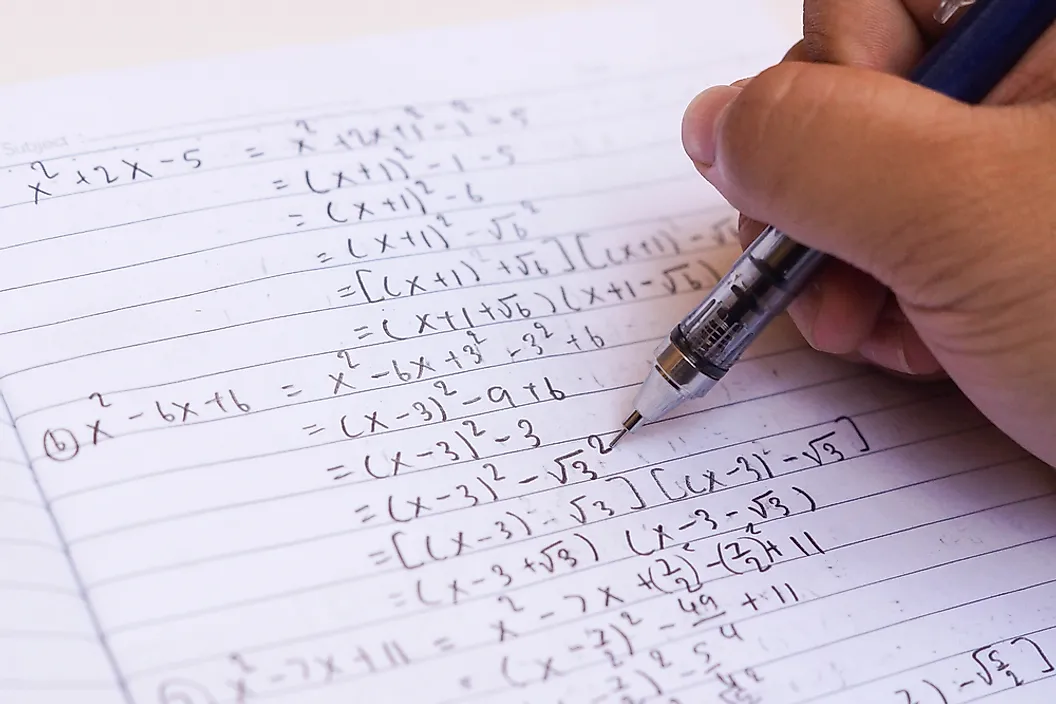 Subject
x² + 2x - 5 = x² + 2x + 1² - 1² - 5
= (x+1)² - 1 - 5
= (x+1)² - 6
= (x+1)² - √6²
= [(x+1) + √6] [(x+1) - √6
= (x+1+√6) (x+1-√6)
(b) x² - 6x + 6 = x² - 6x + 3² - 3² + 6
= (x-3)² - 9 + 6
= (x-3)² - 3
= (x-3)² - √3²
= [(x-3) - √3] [(x-3) - √3]
= (x-3+√3) (x-3-√3)
x² - 7x + 11 = x² - 7x + (7/2)² - (7/2)² + 11
(x - 7/2)² - 49/4 + 11
7/2)² - 5/4
) - √5/2]